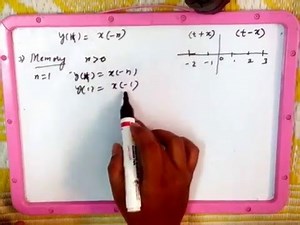 y(n) = x(-n)
(t+x) (t-x)
2) Memory n>0
-2 -1 0 1 2 3
n=1 y(n) = x(-n)
y(1) = x(-1)